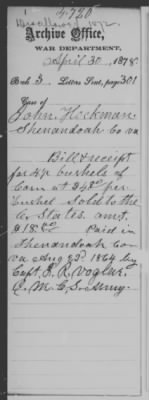 4726
Archive Office,
WAR DEPARTMENT,
April 30, 1878
Book 5 Letters Sent, page 301
Case of
John Hockman
Shenandoah Co va
Bill & receipt
for 4½ bushels of
Corn at $4 per
bushel Sold to the
C. States. amt.
$18.00 Paid in
Shenandoah Co
va Aug 23d 1864 by
Capt. J. R. Vogler
C. M. C. S. Army.